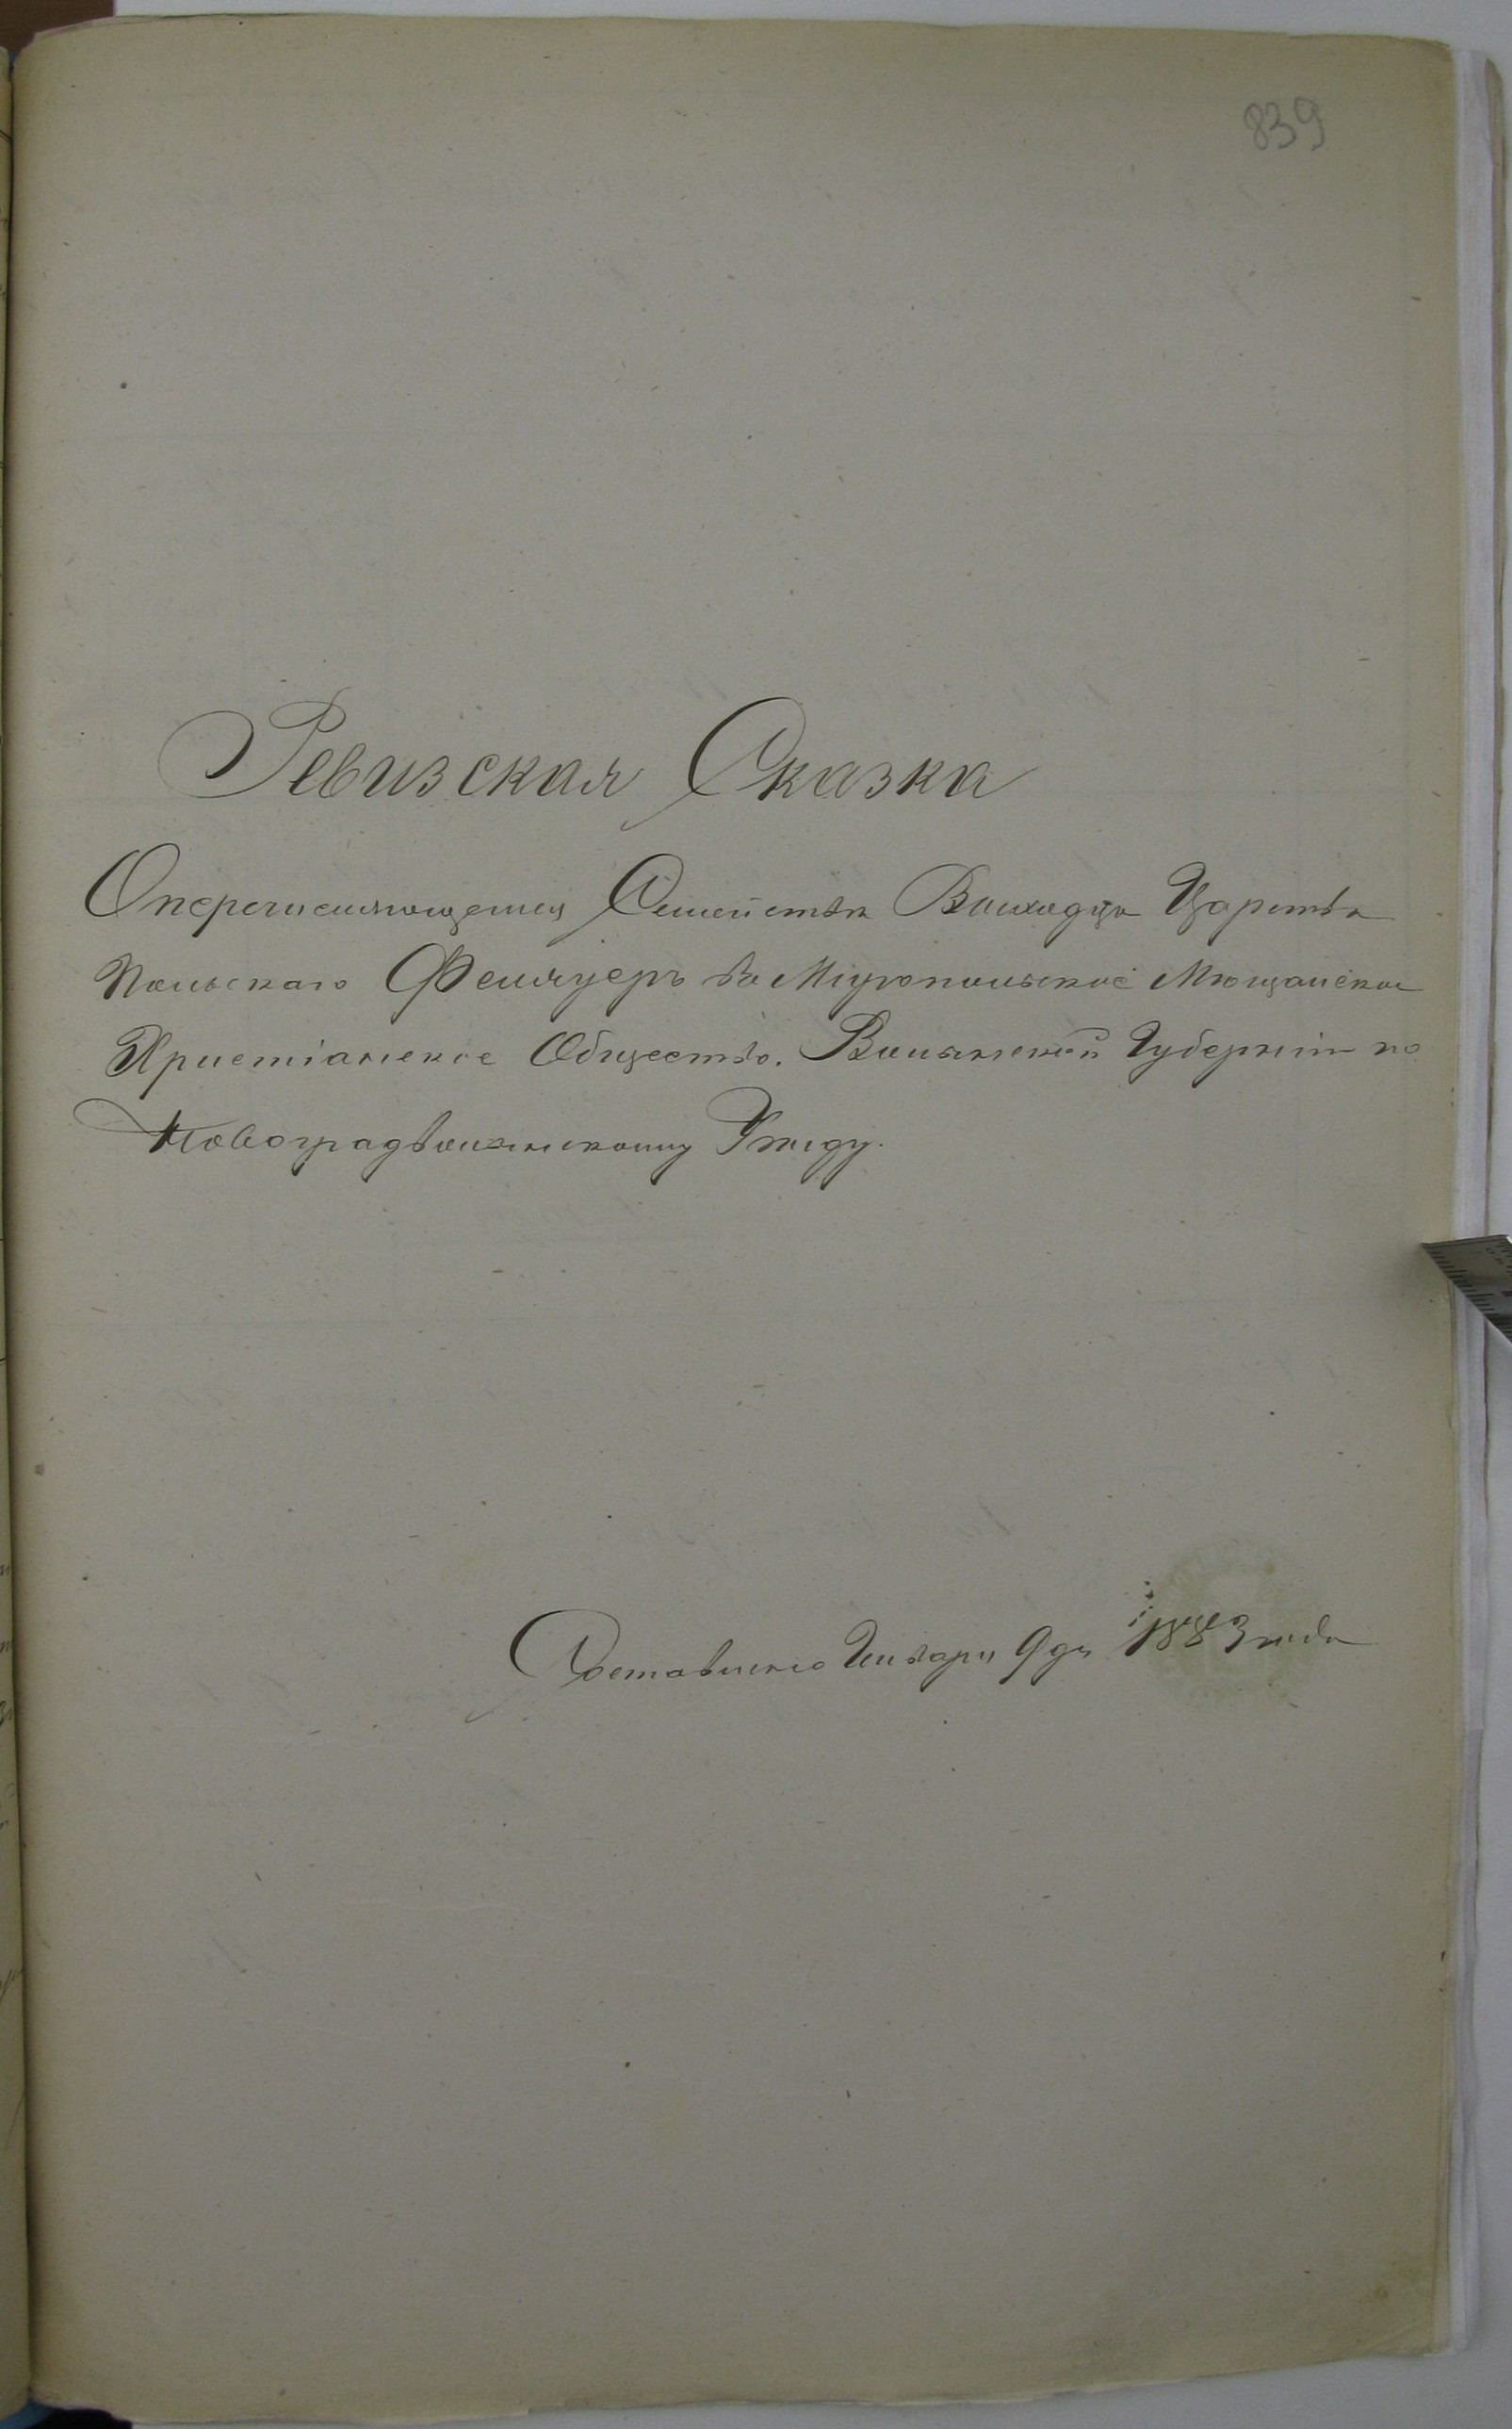 839
Ревизская Сказка
О перечисляющемся Семействе Выходца Царства
Польскаго Фенцлеръ во Міропольское Мещанское
Христіанское Общество. Волынской Губерніи по
Новоградволынскому Уезду.
Составлено Января 9 дн 1883 года